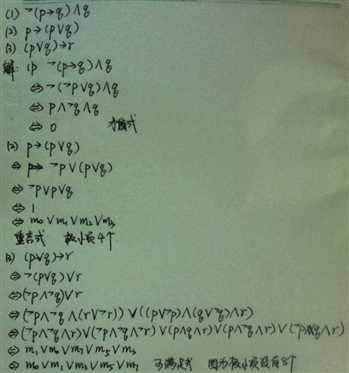 (1) ¬(p→q)∧q
(2) p→(p∨q)
(3) (p∨q)→r
解: (1) ¬(p→q)∧q
⇔ ¬(¬p∨q)∧q
⇔ p∧¬q∧q
⇔ 0 矛盾式
(2) p→(p∨q)
⇔ ¬p∨(p∨q)
⇔ ¬p∨p∨q
⇔ 1
⇔ m₀∨m₁∨m₂∨m₃
重言式 极小项4个
(3) (p∨q)→r
⇔ ¬(p∨q)∨r
⇔ (¬p∧¬q)∨r
⇔ (¬p∧¬q∧(r∨¬r))∨((p∨¬p)∧(q∨¬q)∧r)
⇔ (¬p∧¬q∧r)∨(¬p∧¬q∧¬r)∨(p∧q∧r)∨(p∧¬q∧r)∨(¬p∧q∧r)
⇔ m₁∨m₀∨m₇∨m₅∨m₃
⇔ m₀∨m₁∨m₃∨m₅∨m₇ 可满足式 因为极小项没有8个